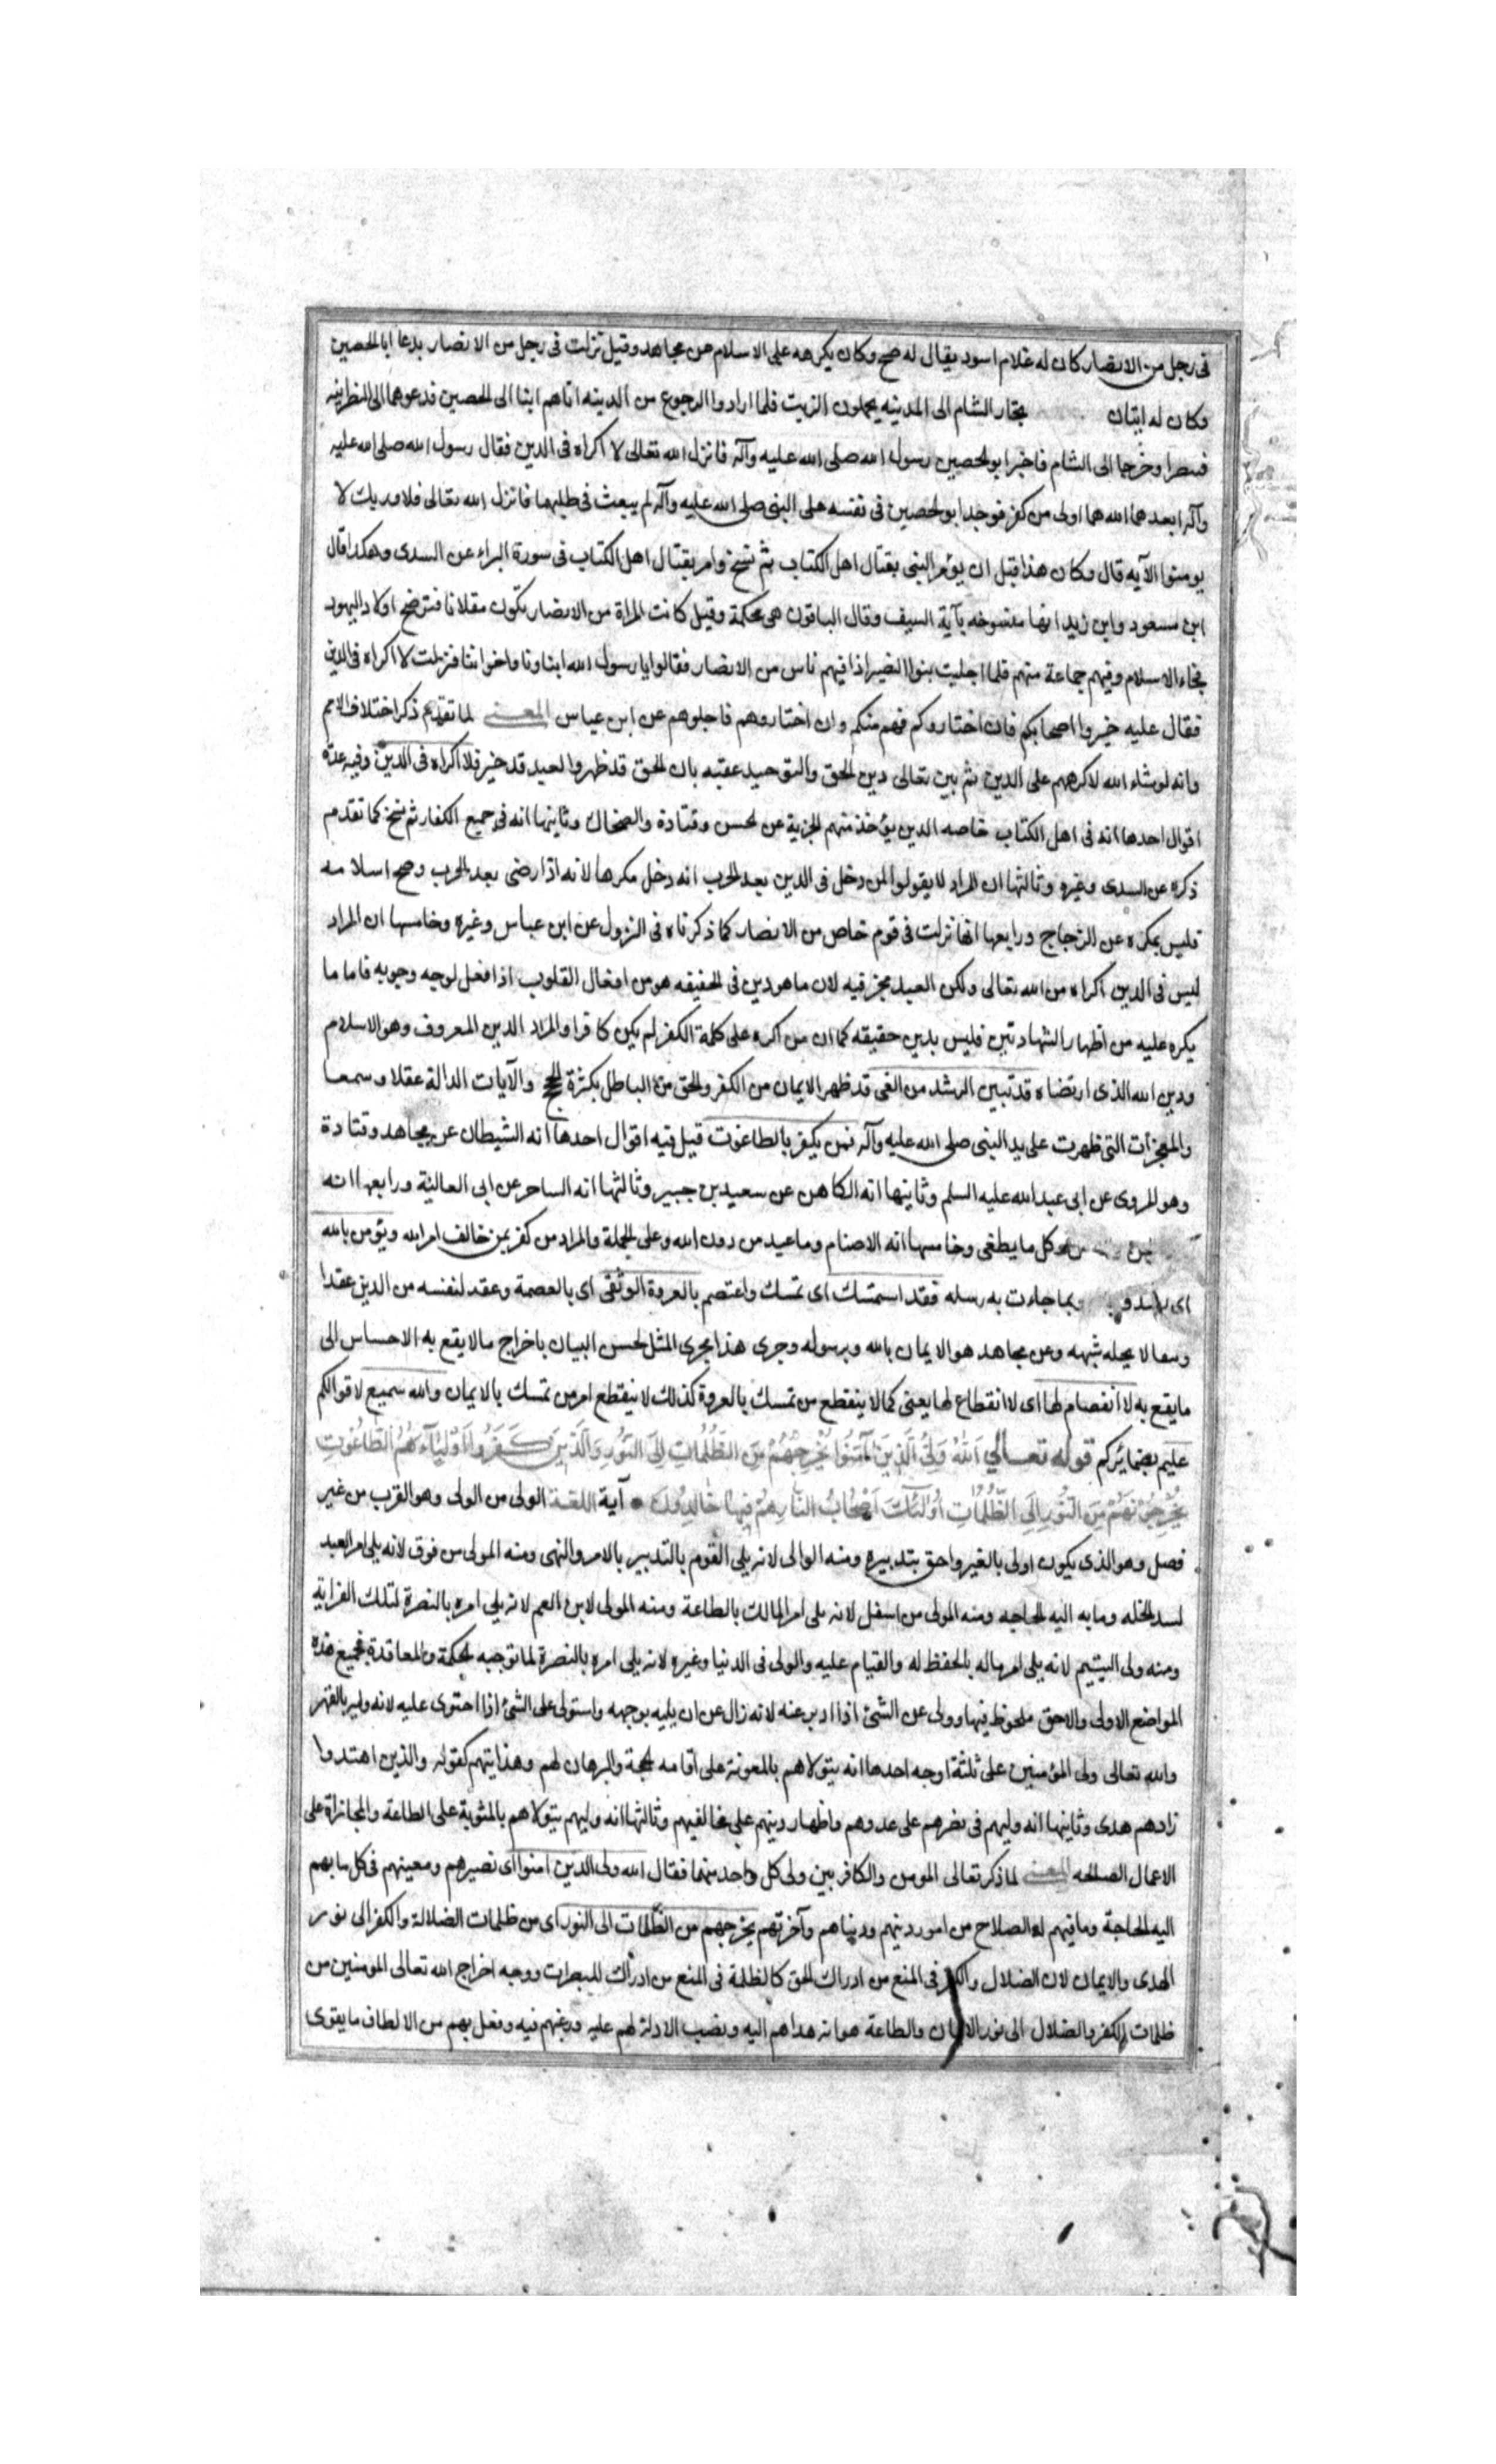 فى رجل من الانصار كان له غلام اسود يقال له صبح وكان يكرهه على الاسلام عن مجاهد وقيل نزلت فى رجل من الانصار يدعا ابا الحصين
وكان له ابنان تجار الشام الى المدينه يحملون الزيت فلما ارادوا الرجوع من المدينه اتاهم ابنا الى الحصين فدعوهما الى النصرانيه
فتنصرا وخرجا الى الشام فاخبر ابو الحصين رسول الله صلى الله عليه وآله فانزل الله تعالى لا اكراه فى الدين فقال رسول الله صلى الله عليه
وآله ابعدهما الله هما اولى من كفر فوجد ابو الحصين فى نفسه على النبى صلى الله عليه وآله لم يبعث فى طلبهما فانزل الله تعالى فلا وربك لا
يومنوا الآيه قال وكان هذا قبل ان يؤمر النبى بقتال اهل الكتاب ثم نسخ وامر بقتال اهل الكتاب فى سورة البراء عن السدى وهكذا قال
ابن مسعود وابن زيد انها منسوخه بآية السيف وقال الباقون هى محكمة وقيل كانت المراة من الانصار تكون مقلاتا فترضع اولاد اليهود
فجاء الاسلام وفيهم جماعة منهم فلما اجليت بنوا النضير اذا فيهم ناس من الانصار فقالوا يا رسول الله ابناونا واخواننا فنزلت لا اكراه فى الدين
فقال عليه خيروا اصحابكم فان اختاروكم فهم منكم وان اختاروهم فاجلوهم عن ابن عباس المعنى لما تقدم ذكر اختلاف الامم
وانه لو شاء الله لاكرههم على الدين ثم بين تعالى دين الحق والتوحيد عقبه بان الحق قد ظهر والعبد قد خير فلا اكراه فى الدين وفيه عدة
اقوال احدها انه فى اهل الكتاب خاصه الدين يؤخذ منهم الجزية عن الحسن وقتادة والضحاك وثانيها انه فى جميع الكفار ثم نسخ كما تقدم
ذكره عن السدى وغيره وثالثها ان المراد لا يقولوا لمن دخل فى الدين بعد الحرب انه دخل مكرها لانه اذا رضى بعد الحرب وصح اسلامه
فليس بمكره عن الزجاج ورابعها انها نزلت فى قوم خاص من الانصار كما ذكرناه فى النزول عن ابن عباس وغيره وخامسها ان المراد
ليس فى الدين اكراه من الله تعالى ولكن العبد مخير فيه لان ما هو دين فى الحقيقه هو من افعال القلوب اذا فعل لوجه وجوبه فاما ما
يكره عليه من اظهار الشهادتين فليس بدين حقيقه كما ان من اكره على كلمة الكفر لم يكن كافرا والمراد الدين المعروف وهو الاسلام
ودين الله الذى ارتضاه قد تبين الرشد من الغى قد ظهر الايمان من الكفر والحق من الباطل بكثرة الحجج والآيات الدالة عقلا وسمعا
والمعجزات التى ظهرت على يد النبى صلى الله عليه وآله فمن يكفر بالطاغوت قيل فيه اقوال احدها انه الشيطان عن مجاهد وقتادة
وهو المروى عن ابى عبد الله عليه السلم وثانيها انه الكاهن عن سعيد بن جبير وثالثها انه الساحر عن ابى العالية ورابعها انه
وكل ما يطغى وخامسها انه الاصنام وما عبد من دون الله وعلى الجملة والمراد من كفر بمن خالف امر الله ويؤمن بالله
اى وبما جاءت به رسله فقد استمسك اى تمسك واعتصم بالعروة الوثقى اى بالعصمة وعقد لنفسه من الدين عقدا
وسعا لا يحله شبهه وعن مجاهد هو الايمان بالله وبرسوله وجرى هذا مجرى المثل لحسن البيان باخراج ما لا يقع به الاحساس الى
ما يقع به لا انفصام لها اى لا انقطاع لها يعنى كما لا ينقطع من تمسك بالعروة كذلك لا ينقطع امر من تمسك بالايمان والله سميع لاقوالكم
عليم بضمائركم قوله تعالى اَللهُ وَلِىُّ الَّذِينَ آمَنُوا يُخْرِجُهُمْ مِنَ الظُّلُمَاتِ اِلَى النُّورِ وَالَّذِينَ كَفَرُوا اَوْلِيَآءُهُمُ الطَّاغُوتُ
يُخْرِجُونَهُمْ مِنَ النُّورِ اِلَى الظُّلُمَاتِ اُولٰئِكَ اَصْحَابُ النَّارِ هُمْ فِيهَا خَالِدُونَ آية اللغة الولى من الولى وهو القرب من غير
فصل وهو الذى يكون اولى بالغير واحق بتدبيره ومنه الوالى لانه يلى القوم بالتدبير بالامر والنهى ومنه المولى من فوق لانه يلى امر العبد
لسد الخله وما به اليه الحاجه ومنه المولى من اسفل لانه يلى امر المالك بالطاعة ومنه المولى لابن العم لانه يلى امره بالنصرة لتلك القرابة
ومنه ولى اليتيم لانه يلى امر ماله بالحفظ له والقيام عليه والولى فى الدنيا وغيره لانه يلى امره بالنصرة لما توجبه الحكمة والمعاقدة فجميع هذه
المواضع الاولى والاحق ملحوظ فيها وولى عن الشئ اذا ادبر عنه لانه زال عن ان يليه بوجهه واستولى على الشئ اذا احتوى عليه لانه وليه بالقهر
والله تعالى ولى المؤمنين على ثلثة اوجه احدها انه يتولاهم بالمعونة على اقامه الحجة والبرهان لهم وهدايتهم كقوله والذين اهتدوا
زادهم هدى وثانيها انه وليهم فى نصرهم على عدوهم واظهار دينهم على مخالفيهم وثالثها انه وليهم يتولاهم بالمثوبة على الطاعة والمجازاة على
الاعمال الصالحه المعنى لما ذكر تعالى المومن والكافر بين ولى كل واحد منهما فقال الله ولى الدين امنوا اى نصيرهم ومعينهم فى كل ما بهم
اليه الحاجة وما فيهم له الصلاح من امور دينهم ودنياهم وآخرتهم يخرجهم من الظلمات الى النور اى من ظلمات الضلالة والكفر الى نور
الهدى والايمان لان الضلال والكفر فى المنع من ادراك الحق كالظلمة فى المنع من ادراك المبصرات ووجه اخراج الله تعالى المومنين من
ظلمات الكفر والضلال الى نور الايمان والطاعة هو انه هداهم اليه ونصب الادلة لهم عليه ورغبهم فيه وفعل بهم من الالطاف ما يقوى